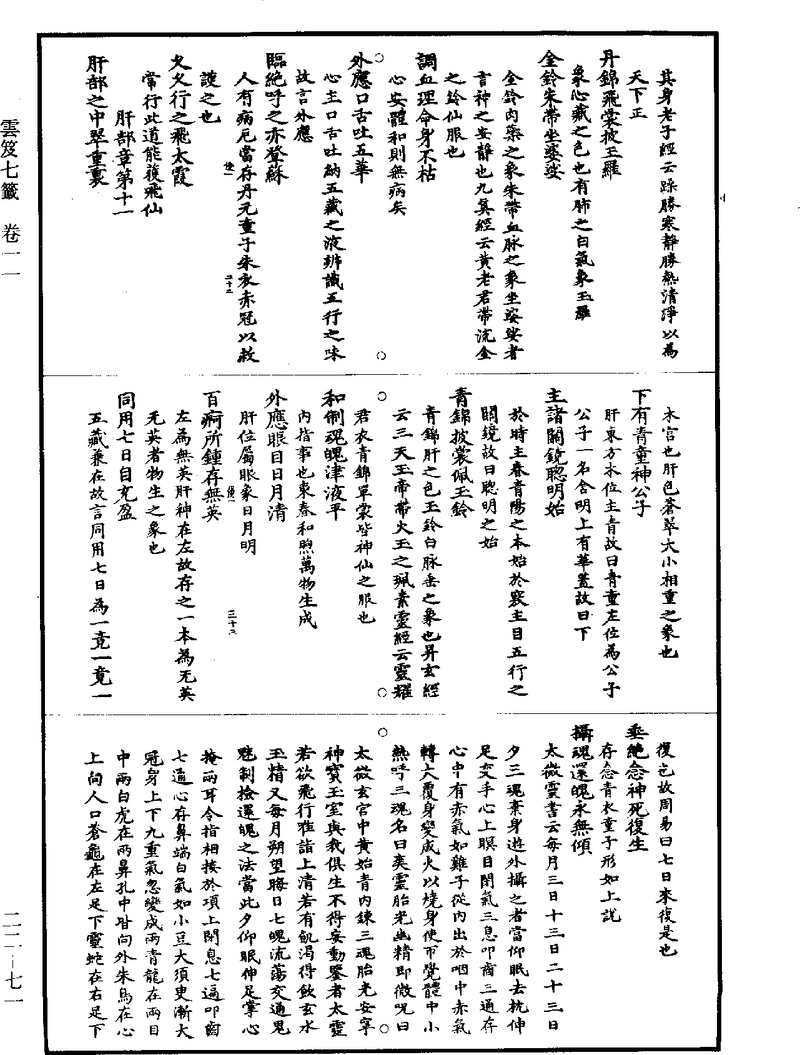 雲笈七籤　卷一一
二二—七一
其身老子經云躁勝寒靜勝熱清淨以為
天下正
丹錦飛裳披玉羅
象心藏之色也有肺之白氣象玉羅
金鈴朱帶坐婆娑
金鈴肉藥之象朱帶血脉之象坐婆娑者
言神之安靜也九真經云黃老君帶流金
之鈴仙服也
調血理命身不枯
心安體和則無病矣
外應口舌吐五華
心主口舌吐納五藏之液辨識五行之味
故言外應
臨絕呼之亦登蘇
人有病厄當存丹元童子朱衣赤冠以救
護之也
久久行之飛太霞
常行此道能復飛仙
肝部章第十一
肝部之中翠重裏
木宮也肝色蒼翠大小相重之象也
下有青童神公子
肝東方木位主青故曰青童左位為公子
公子一名含明上有華蓋故曰下
主諸關鏡聰明始
於時主春青陽之本始於竅主目五行之
關鏡故曰聰明之始
青錦披裳佩玉鈴
青錦肝之色玉鈴白脉垂之象也昇玄經
云三天玉帝帶火玉之珮素靈經云靈耀
君衣青錦單裳皆神仙之服也
和制魂魄津液平
內指事也東春和煦萬物生成
外應眼目日月清
肝位屬眼象日月明
百痾所鍾存無英
左為無英肝神在左故存之一本為无英
无英者物生之象也
同用七日自充盈
五藏兼在故言同用七日為一竟一竟一
復也故周易曰七日來復是也
垂絕念神死復生
存念青衣童子形如上說
攝魂還魄永無傾
太微靈書云每月三日十三日二十三日
夕三魂棄身遊外攝之者當仰眠去枕伸
足交手心上瞑目閉氣三息叩齒三通存
心中有赤氣如雞子從內出於咽中赤氣
轉大覆身變成火以燒身使帀覺體中小
熱呼三魂名曰爽靈胎光幽精即微呪曰
太微玄宮中黃始青內鍊三魂胎光安寧
神寶玉室與我俱生不得妄動鑒者太靈
若欲飛行唯詣上清若有飢渴得飲玄水
玉精又每月朔望晦日七魄流蕩交通鬼
魅制檢還魄之法當此夕仰眠伸足掌心
掩兩耳令指相接於項上閉息七遍叩齒
七通心存鼻端白氣如小豆大須臾漸大
冠身上下九重氣忽變成兩青龍在兩目
中兩白虎在兩鼻孔中皆向外朱鳥在心
上向人口蒼龜在左足下靈蛇在右足下